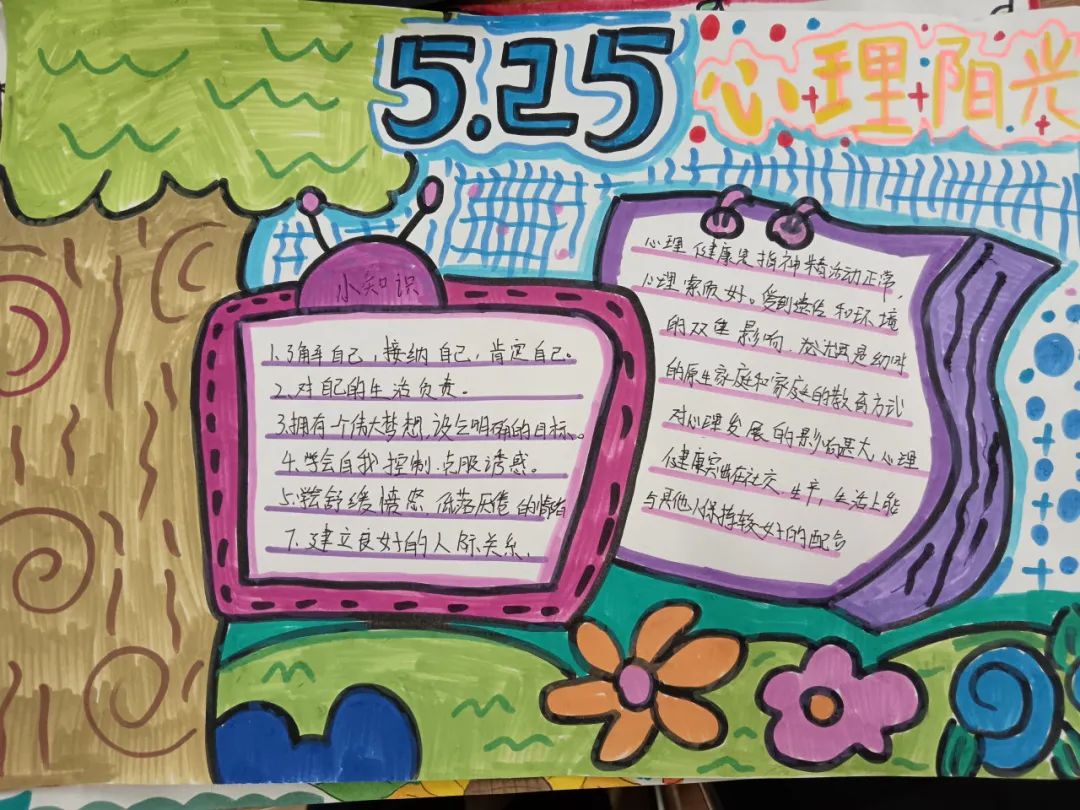 5.25
心理阳光
小知识
1.了解自己，接纳自己，肯定自己。
2.对自己的生活负责。
3.拥有一个伟大梦想，设立明确的目标。
4.学会自我控制，克服诱惑。
5.学会舒缓愤怒 低落厌倦的情绪
7.建立良好的人际关系.
心理健康是指神精活动正常，
心理素质好。受到遗传和环境
的双重影响.尤其是幼时
的原生家庭和家庭的教育方式
对心理发展的影响甚大 心理
健康突出在社交 生产，生活上能
与其他人保持较好的配合